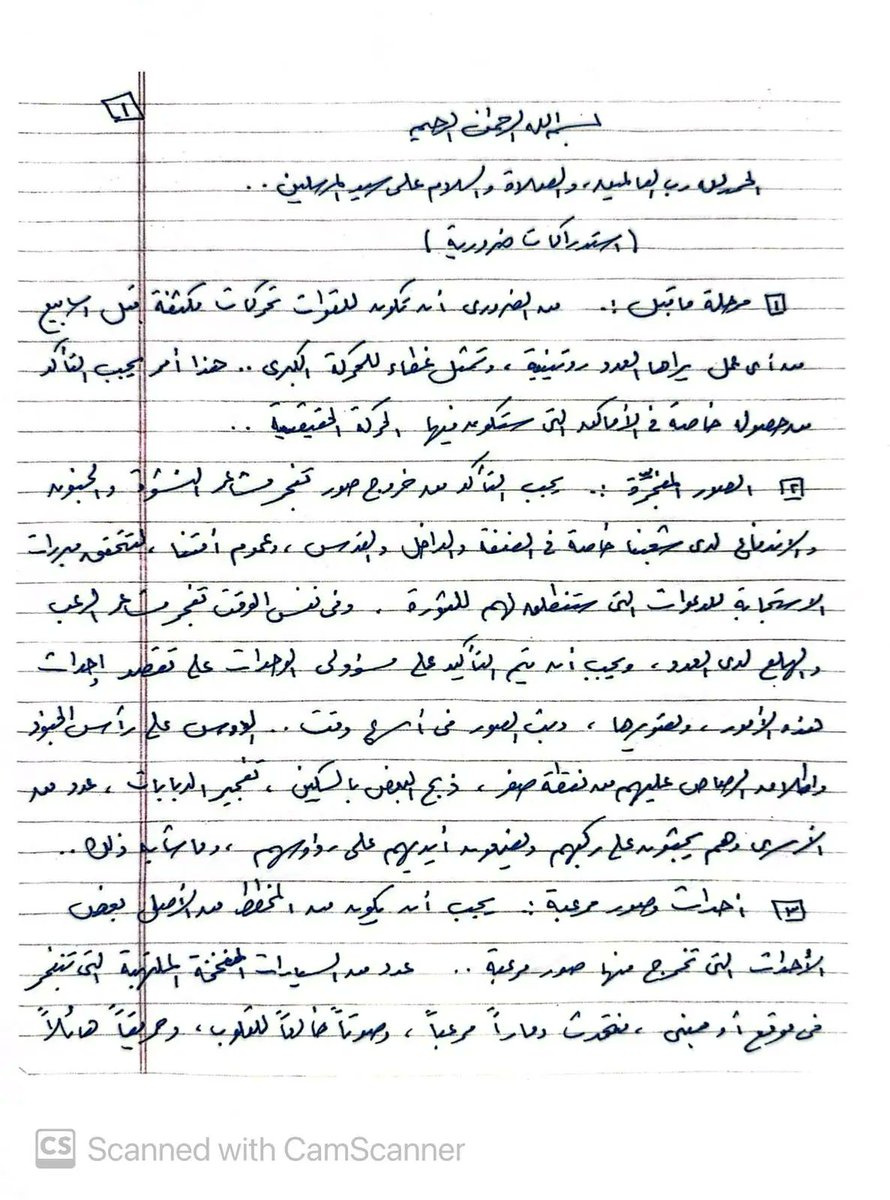 ١
بسم الله الرحمن الرحيم
الحمد لله رب العالمين، والصلاة والسلام على سيد المرسلين ..
(استدراكات ضرورية)
١ مرحلة ما قبل :. من الضرورى أن تكون للقوات تحركات مكثفة قبل اسابيع
من أى عمل يراها العدو روتينية، وتمثل غطاء للحركة الكبرى .. هذا أمر يجب التأكد
من حصوله خاصة فى الأماكن التى ستكون فيها الحركة الحقيقية ..
٢ الصور المفجرة :. يجب التأكد من خروج صور تفجر مشاعر النشوة والجنون
والاندفاع لدى شعبنا خاصة فى الضفة والداخل والقدس، وعموم أمتنا، لتتحقق مبررات
الاستجابة للدعوات التى ستنطلق لهم للثورة . وفى نفس الوقت تفجر مشاعر الرعب
والهلع لدى العدو، ويجب أن يتم التأكيد على مسؤولى الوحدات على تقصد إحداث
هذه الأمور، وتصويرها، وبث الصور فى أسرع وقت .. الدوس على رأس الجنود
واطلاق الرصاص عليهم من نقطة صفر، ذبح البعض بالسكين، تفجير الدبابات، عدد من
الأسرى وهم يجثون على ركبهم ويضعون أيديهم على رؤوسهم، وما شابه ذلك ..
٣ أحداث وصور مرعبة : يجب أن يكون من المخطط من الأصل بعض
الأحداث التى تخرج منها صور مرعبة .. عدد من السيارات المفخخة الملتهبة التى تنفجر
فى موقع أو مبنى، فتحدث دماراً مرعباً، وصوتاً خالعاً للقلوب، وحريقاً هائلاً
CS Scanned with CamScanner